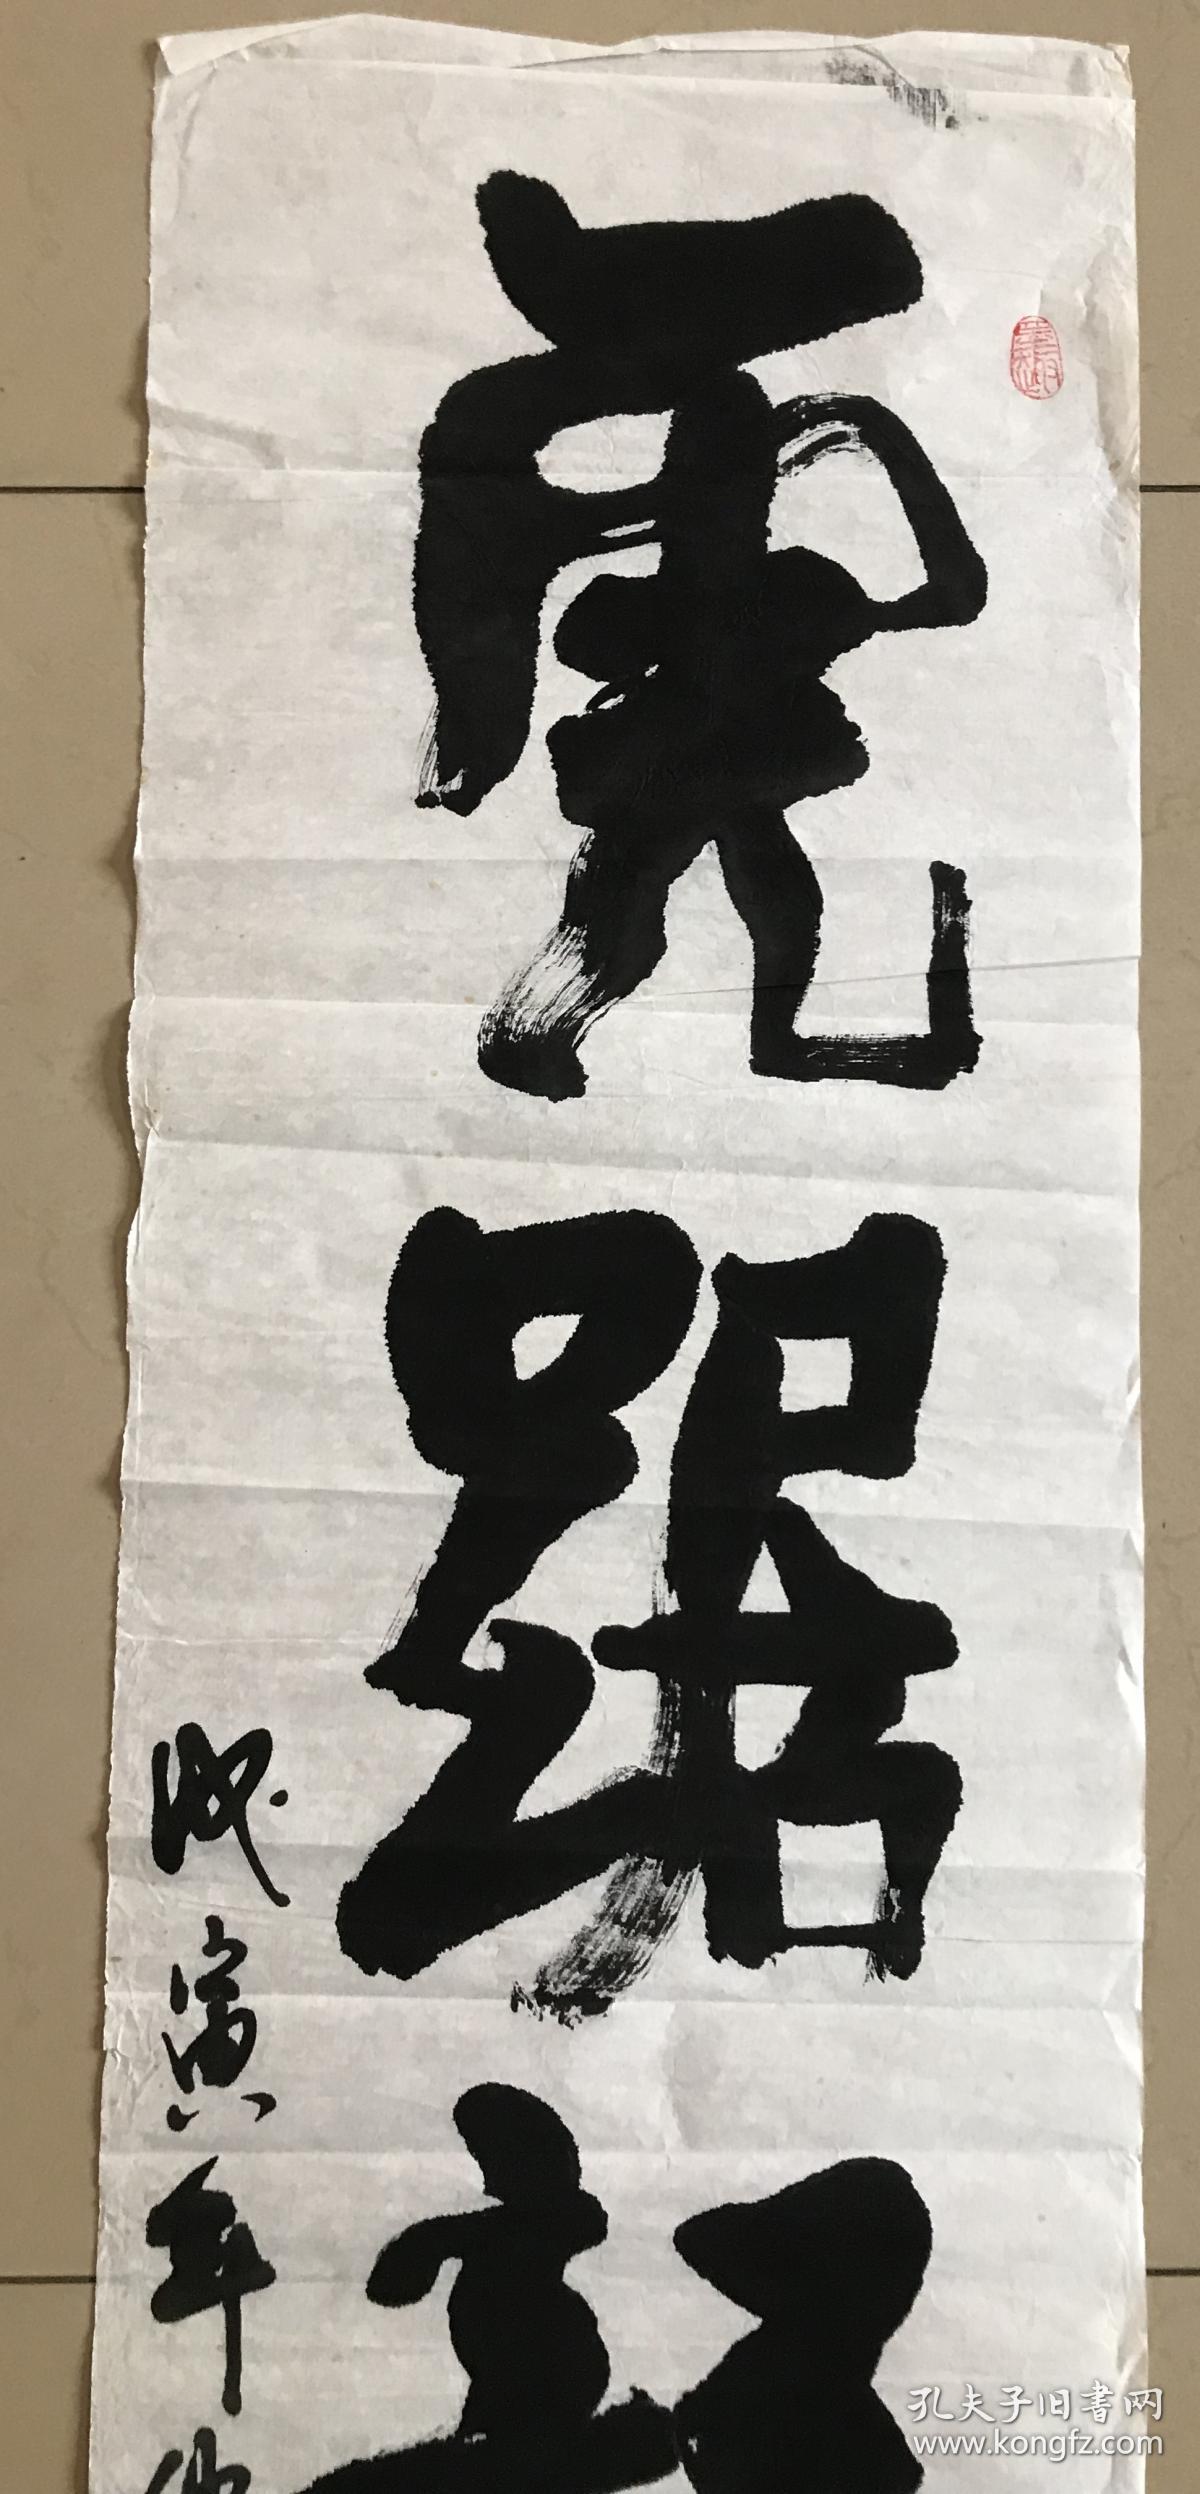 虎踞
戊寅年
孔夫子旧書网
www.kongfz.com